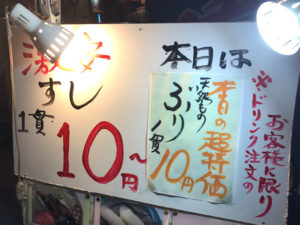 激安
すし
1貫
10円~
本日は
本日の超特価
天然もの
ぶり1貫
10円
※ドリンク注文の
お客様に限り